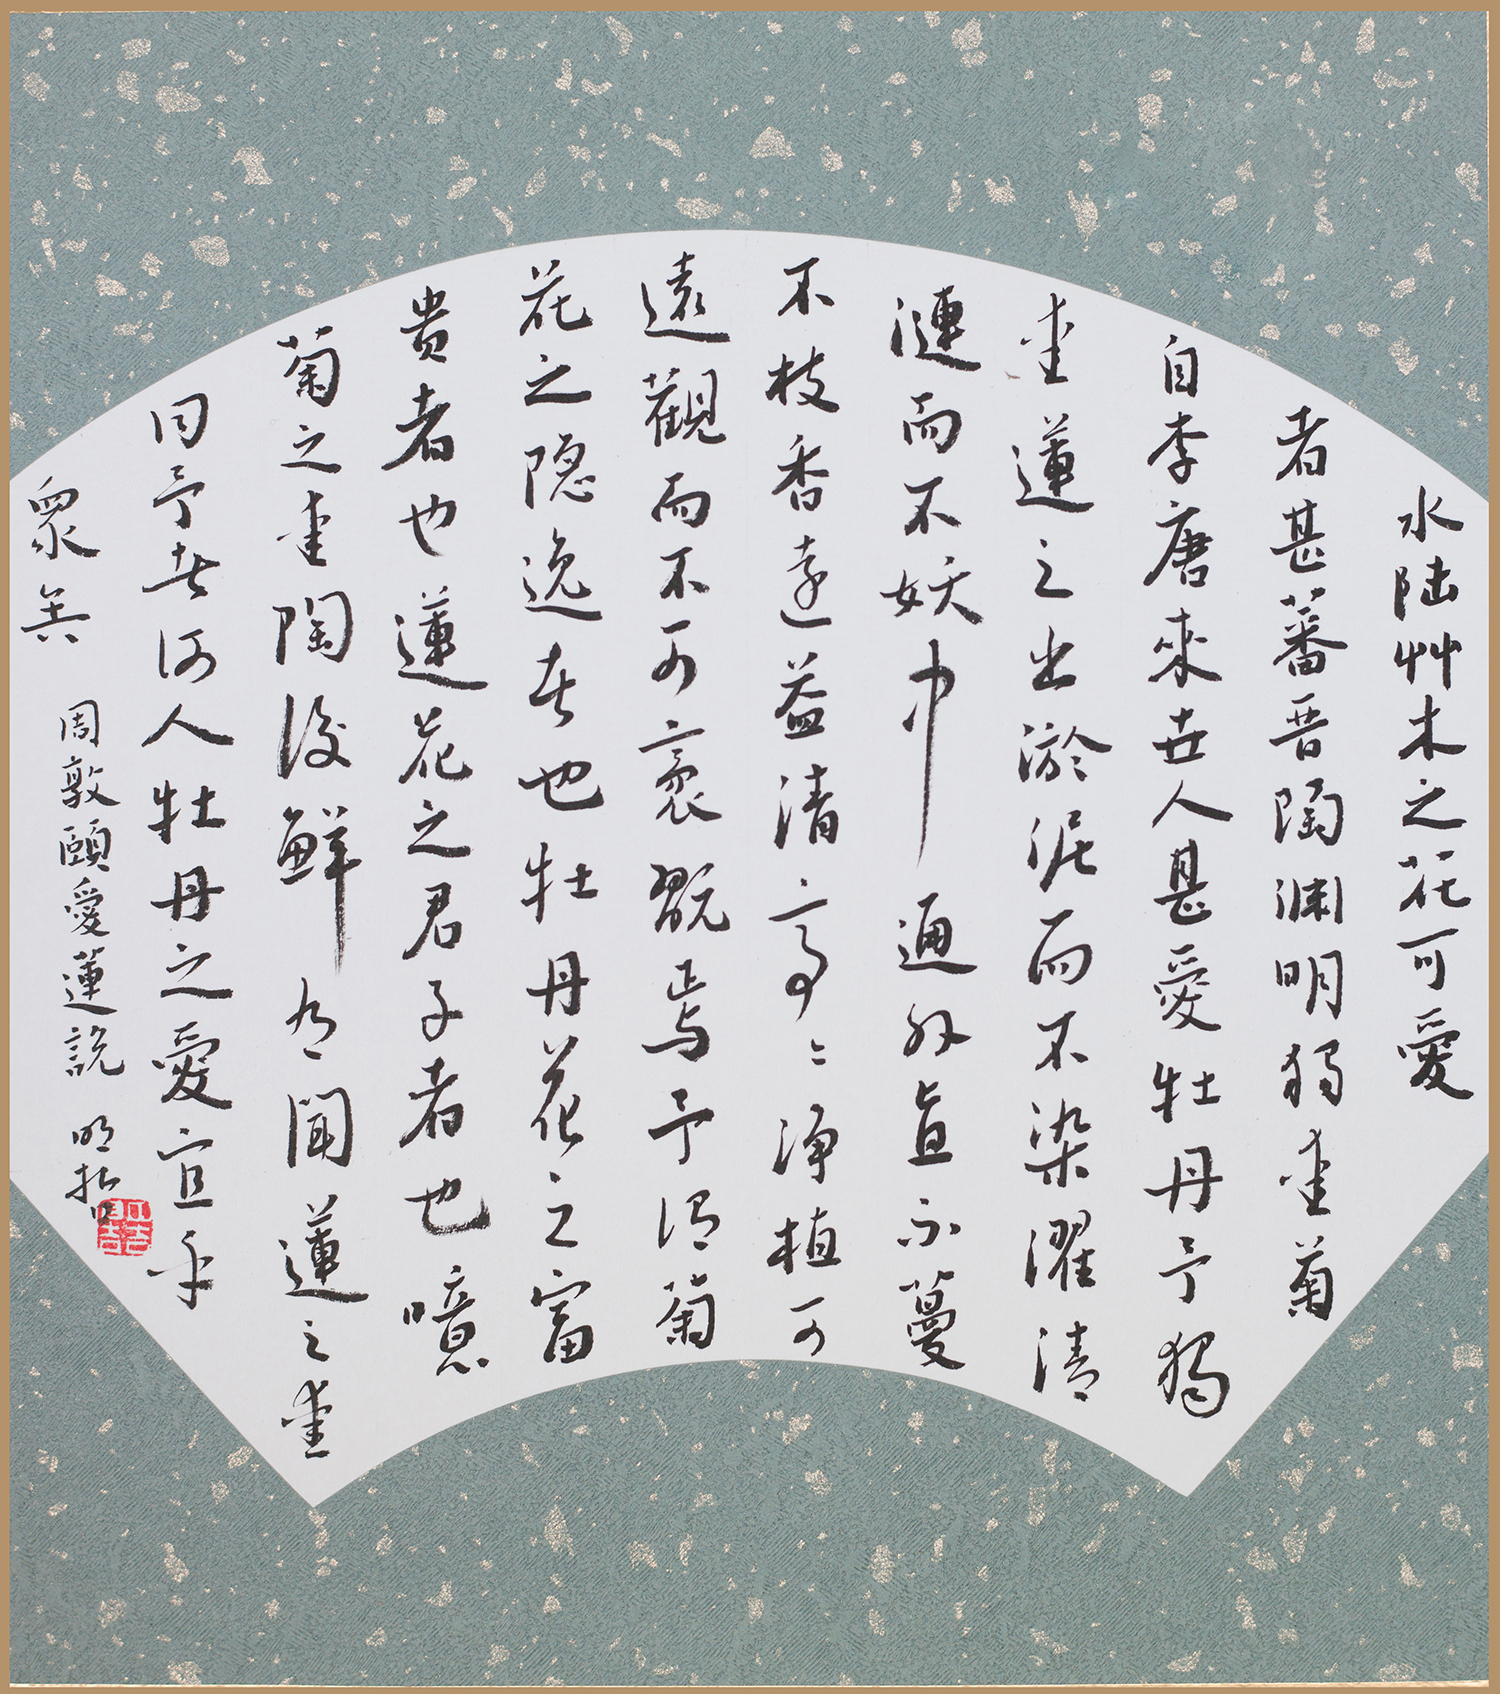 水陆艸木之花可愛
者甚蕃晋陶渊明獨愛菊
自李唐來世人甚愛牡丹予獨
愛蓮之出淤泥而不染濯清
漣而不妖中通外直不蔓
不枝香遠益清亭〻淨植可
遠觀而不可褻翫焉予謂菊
花之隐逸者也牡丹花之富
貴者也蓮花之君子者也噫
菊之愛陶後鮮有聞蓮之愛
同予者何人牡丹之愛宜乎
眾矣
周敦頤愛蓮說 明哲